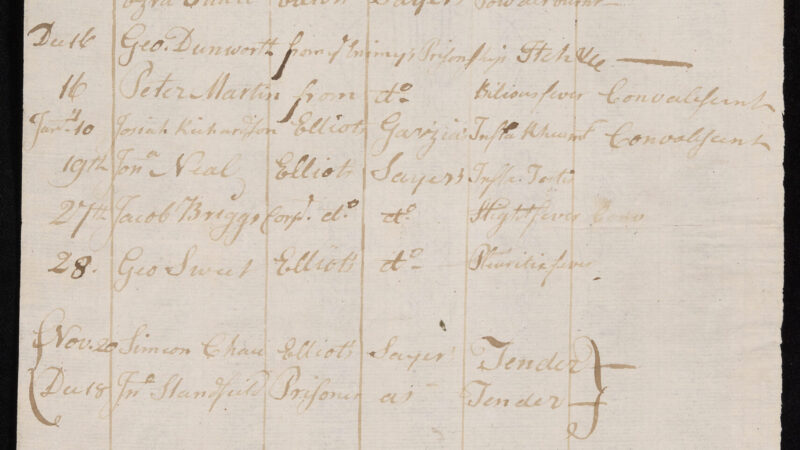 Dec 16 Geo. Dunworth from ye Enimy's Prison Ship Itch &c
16 Peter Martin from do Bilious fever Convalescent
Janry 10 Josiah Richardson Elliots Garzia Infla Rheumt Convalescent
19th Jona Neal Elliots Sayers Infla.
27th Jacob Briggs Corpl. do do Slight fever Conv
28. Geo Sweet Elliots do Pleuritic fever
Nov. 20 Simeon Chace Elliots Sayers Tender
Dec 18 Jno Standfield Prisoner as Tender